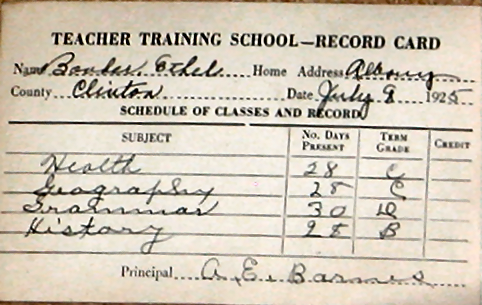 TEACHER TRAINING SCHOOL—RECORD CARD
Name Ethel Home Address Albany
County Clinton Date July 8 1925
SCHEDULE OF CLASSES AND RECORD
SUBJECT No. DAYS PRESENT TERM GRADE CREDIT
Health 28 C
Geography 28 C
Grammar 30 D
History 28 B
Principal A. E. Barnes